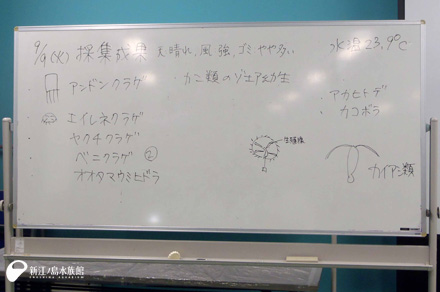 9/9(火) 採集成果 天晴れ、風強、ゴミやや多い 水温23.9℃
アンドンクラゲ
・カニ類のゾエア幼生
・アカヒトデ
・カコボラ
エイレネクラゲ
ヤクチクラゲ
ベニクラゲ ②
オオタマウミヒドラ
生殖巣
カイアシ類
新江ノ島水族館